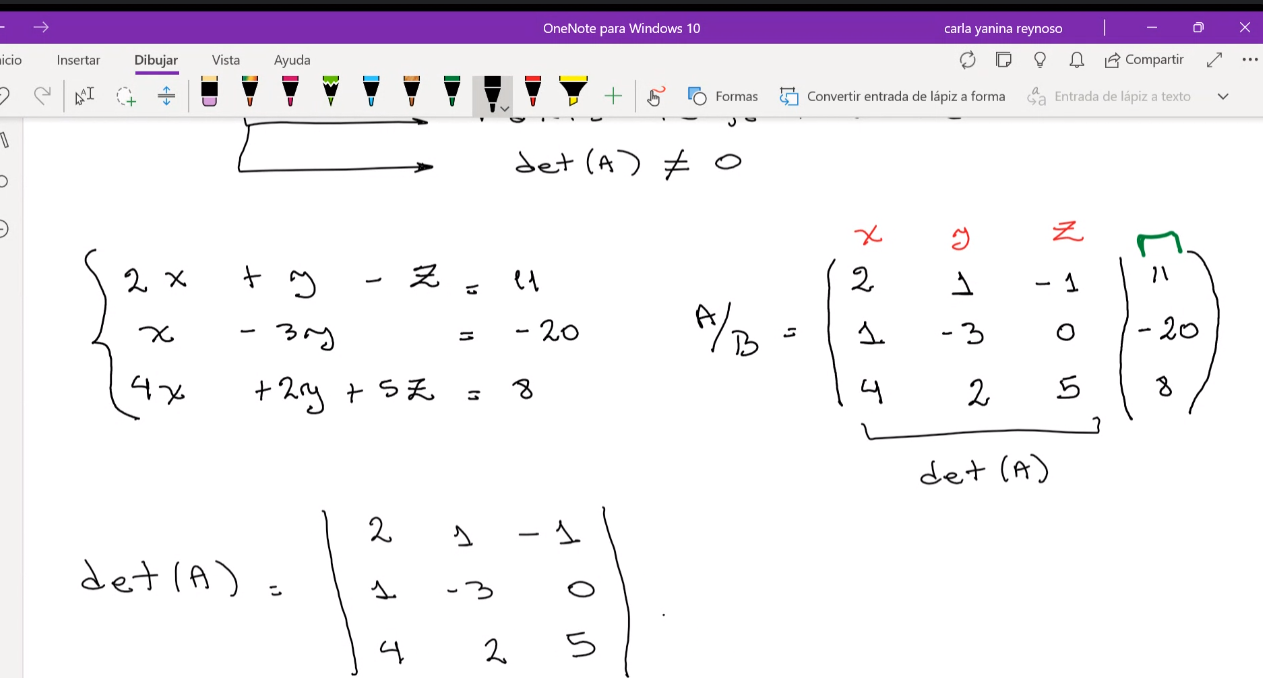 OneNote para Windows 10
carla yanina reynoso
Insertar Dibujar Vista Ayuda
Compartir
Formas Convertir entrada de lápiz a forma Entrada de lápiz a texto
det (A) ≠ 0
x y z
2x + y - z = 11
x - 3y = -20
4x + 2y + 5z = 8
A/B =
2 1 -1 11
1 -3 0 -20
4 2 5 8
det (A)
det (A) =
2 1 -1
1 -3 0
4 2 5